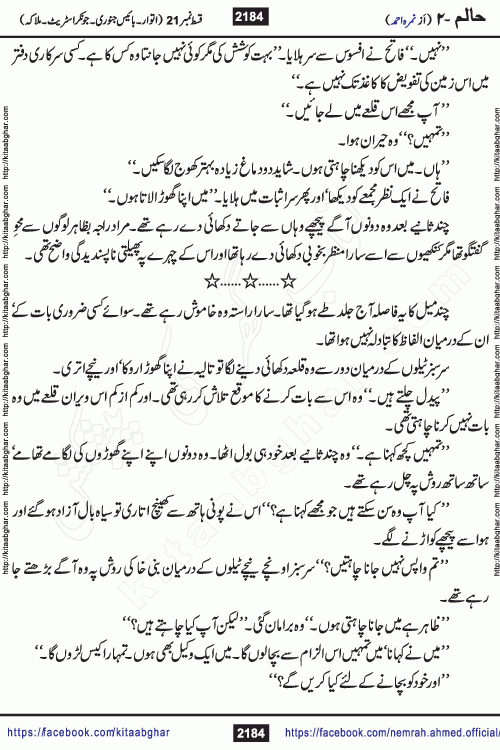 حالم ۔۲ (از نمرہ احمد)
2184
قسط نمبر 21 (اتوار۔ بائیس جنوری۔ جونکر اسٹریٹ۔ ملاکہ)
’’نہیں۔‘‘ فاتح نے افسوس سے سر ہلایا۔ ’’بہت کوشش کی مگر کوئی نہیں جانتا وہ کس کا ہے۔ کسی سرکاری دفتر
میں اس زمین کی تفویض کا کاغذ تک نہیں ہے۔‘‘
’’آپ مجھے اس قلعے میں لے جائیں۔‘‘
’’تمہیں؟‘‘ وہ حیران ہوا۔
’’ہاں۔ میں اس کو دیکھنا چاہتی ہوں۔ شاید دو دماغ زیادہ بہتر کھوج لگا سکیں۔‘‘
فاتح نے ایک نظر مجمعے کو دیکھا‘ اور پھر سر اثبات میں ہلایا۔ ’’میں اپنا گھوڑا لاتا ہوں۔‘‘
چند ثانیے بعد وہ دونوں آگے پیچھے وہاں سے جاتے دکھائی دے رہے تھے۔ مراد راجہ بظاہر لوگوں سے محوِ
گفتگو تھا مگر کنکھیوں سے اسے سارا منظر بخوبی دکھائی دے رہا تھا اور اس کے چہرے پہ پھیلتی ناپسندیدگی واضح تھی۔
☆......☆......☆
چند میل کا یہ فاصلہ آج جلد طے ہو گیا تھا۔ سارا راستہ وہ خاموش رہے تھے۔ سوائے کسی ضروری بات کے‘
ان کے درمیان الفاظ کا تبادلہ نہیں ہوا تھا۔
سرسبز ٹیلوں کے درمیان دور سے وہ قلعہ دکھائی دینے لگا تو تالیہ نے اپنا گھوڑا روکا‘ اور نیچے اتری۔
’’پیدل چلتے ہیں۔‘‘ وہ اس سے بات کرنے کا موقع تلاش کر رہی تھی۔ اور کم از کم اس ویران قلعے میں وہ
بات نہیں کرنا چاہتی تھی۔
’’تمہیں کچھ کہنا ہے۔‘‘ وہ چند ثانیے بعد خود ہی بول اٹھا۔ وہ دونوں اپنے اپنے گھوڑوں کی لگامے تھامے‘
ساتھ ساتھ روش پہ چل رہے تھے۔
’’کیا آپ وہ سن سکتے ہیں جو مجھے کہنا ہے؟‘‘ اس نے پونی ہاتھ سے کھینچ اتاری تو سیاہ بال آزاد ہو گئے اور
ہوا سے پیچھے کو اڑنے لگے۔
’’تم واپس نہیں جانا چاہتیں؟‘‘ سرسبز اونچے نیچے ٹیلوں کے درمیان بنی خاکی روش پہ وہ آگے بڑھتے جا
رہے تھے۔
’’ظاہر ہے میں جانا چاہتی ہوں۔‘‘ وہ برا مان گئی۔ ’’لیکن آپ کیا چاہتے ہیں؟‘‘
’’میں نے کہا نا‘ میں تمہیں اس الزام سے بچا لوں گا۔ میں ایک وکیل بھی ہوں۔ تمہارا کیس لڑوں گا۔‘‘
’’اور خود کو بچانے کے لئے کیا کریں گے؟‘‘
https://facebook.com/kitaabghar
2184
https://facebook.com/nemrah.ahmed.official/
http://kitaabghar.com